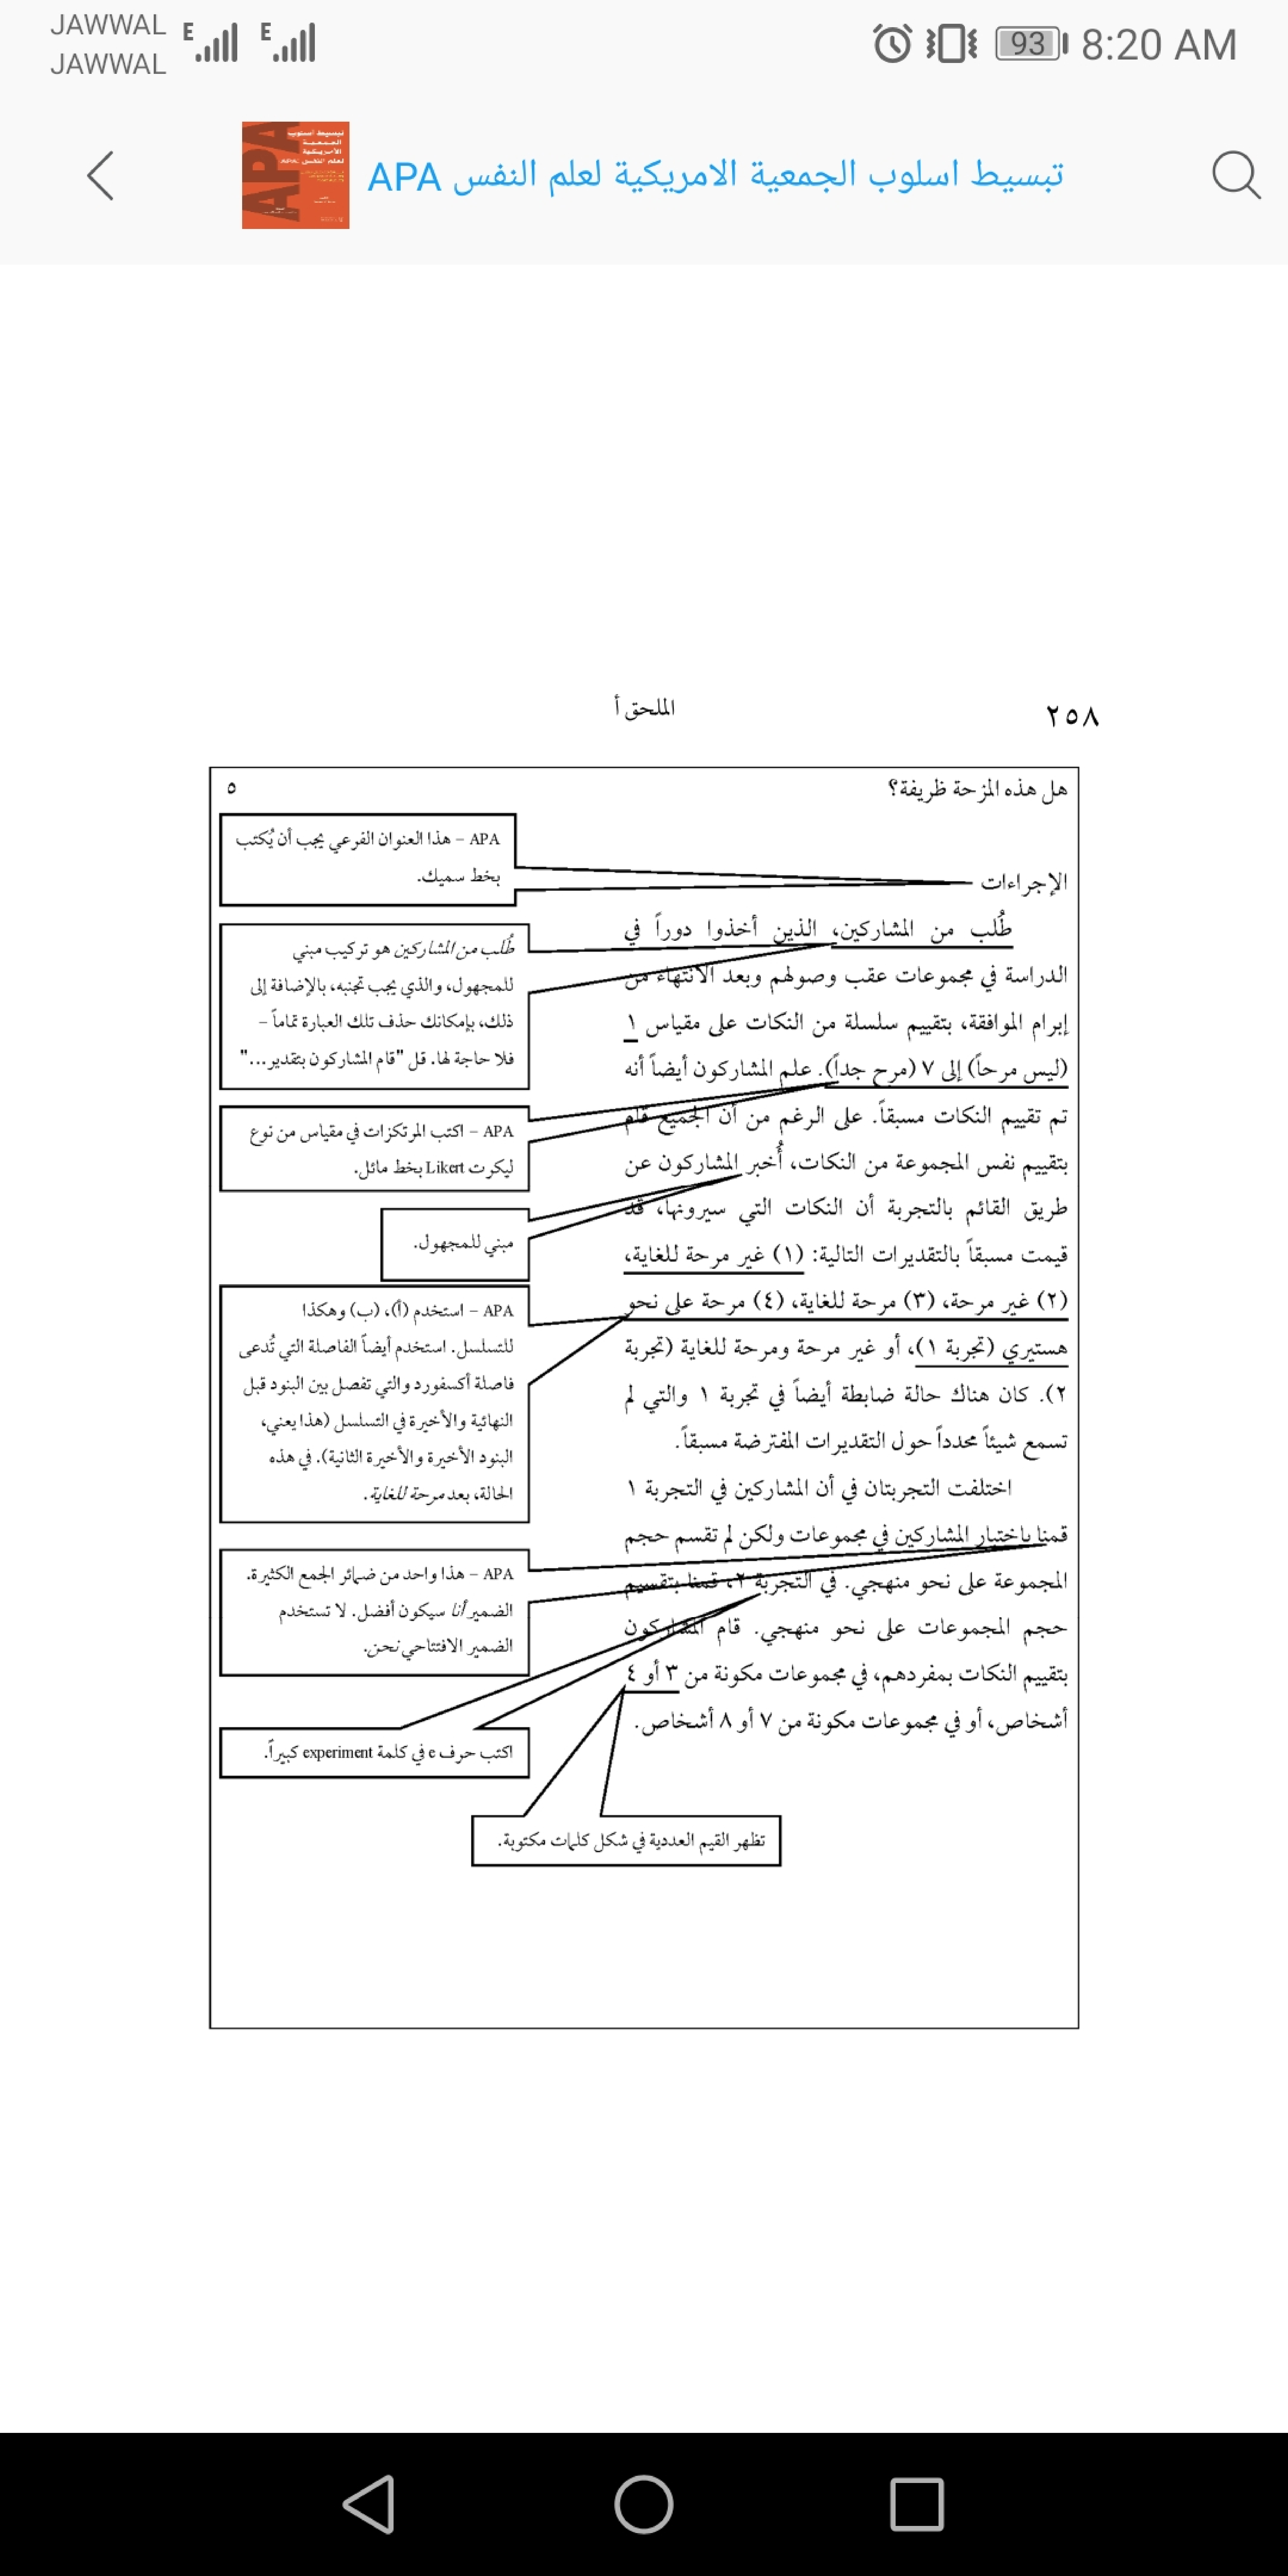 JAWWAL
JAWWAL
E
E
93
8:20 AM
تبسيط اسلوب الجمعية الامريكية لعلم النفس APA
٢٥٨
الملحق أ
هل هذه المزحة ظريفة؟
٥
APA – هذا العنوان الفرعي يجب أن يُكتب
بخط سميك.
الإجراءات
طُلب من المشاركين، الذين أخذوا دوراً في
الدراسة في مجموعات عقب وصولهم وبعد الانتهاء من
إبرام الموافقة، بتقييم سلسلة من النكات على مقياس ١
(ليس مرحاً) إلى ٧ (مرح جداً). علم المشاركون أيضاً أنه
تم تقييم النكات مسبقاً. على الرغم من أن الجميع قام
بتقييم نفس المجموعة من النكات، أُخبر المشاركون عن
طريق القائم بالتجربة أن النكات التي سيرونها، قد
قيمت مسبقاً بالتقديرات التالية: (١) غير مرحة للغاية،
(٢) غير مرحة، (٣) مرحة للغاية، (٤) مرحة على نحو
هستيري (تجربة ١)، أو غير مرحة ومرحة للغاية (تجربة
٢). كان هناك حالة ضابطة أيضاً في تجربة ١ والتي لم
تسمع شيئاً محدداً حول التقديرات المفترضة مسبقاً.
اختلفت التجربتان في أن المشاركين في التجربة ١
قمنا باختبار المشاركين في مجموعات ولكن لم تقسم حجم
المجموعة على نحو منهجي. في التجربة ٢، قمنا بتقسيم
حجم المجموعات على نحو منهجي. قام المشاركون
بتقييم النكات بمفردهم، في مجموعات مكونة من ٣ أو ٤
أشخاص، أو في مجموعات مكونة من ٧ أو ٨ أشخاص.
طُلب من المشاركين هو تركيب مبني
للمجهول، والذي يجب تجنبه، بالإضافة إلى
ذلك، بإمكانك حذف تلك العبارة تماماً –
فلا حاجة لها. قل "قام المشاركون بتقدير..."
APA – اكتب المرتكزات في مقياس من نوع
ليكرت Likert بخط مائل.
مبني للمجهول.
APA – استخدم (أ)، (ب) وهكذا
للتسلسل. استخدم أيضاً الفاصلة التي تُدعى
فاصلة أكسفورد والتي تفصل بين البنود قبل
النهائية والأخيرة في التسلسل (هذا يعني،
البنود الأخيرة والأخيرة الثانية). في هذه
الحالة، بعد مرحة للغاية.
APA – هذا واحد من ضمائر الجمع الكثيرة.
الضمير أنا سيكون أفضل. لا تستخدم
الضمير الافتتاحي نحن.
اكتب حرف e في كلمة experiment كبيراً.
تظهر القيم العددية في شكل كلمات مكتوبة.